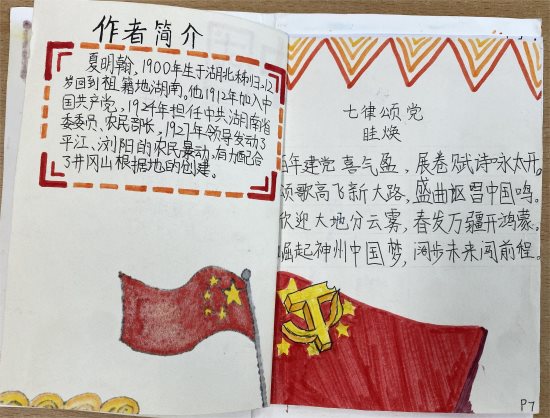 作者简介
夏明翰，1900年生于湖北秭归，12
岁回到祖籍地湖南，他1912年加入中
国共产党，1924年担任中共湖南省
委委员、农民部长，1927年领导发动了
平江、浏阳的农民暴动，有力配合
了井冈山根据地的创建。
七律颂党
眭焕
年建党喜气盈，展卷赋诗咏太开。
颂歌高飞新大路，盛曲 中国鸣。
欣迎大地分云雾，春发万疆开鸿蒙。
崛起神州中国梦，阔步未来闯前程。
P7